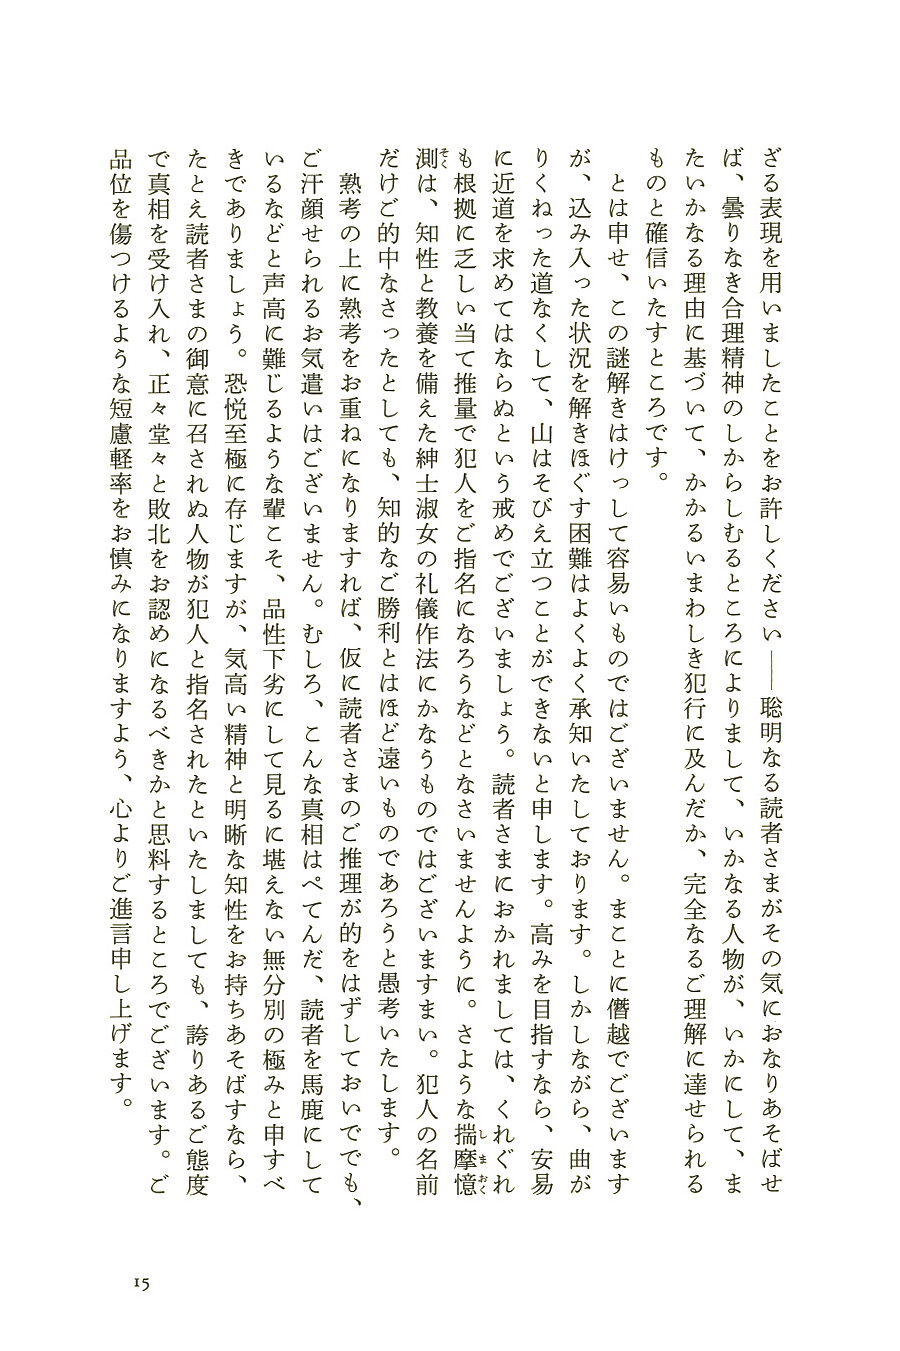 ざる表現を用いましたことをお許しください――聡明なる読者さまがその気におなりあそばせ
ば、曇りなき合理精神のしからしむるところによりまして、いかなる人物が、いかにして、ま
たいかなる理由に基づいて、かかるいまわしき犯行に及んだか、完全なるご理解に達せられる
ものと確信いたすところです。
　とは申せ、この謎解きはけっして容易いものではございません。まことに僭越でございます
が、込み入った状況を解きほぐす困難はよくよく承知いたしております。しかしながら、曲が
りくねった道なくして、山はそびえ立つことができないと申します。高みを目指すなら、安易
に近道を求めてはならぬという戒めでございましょう。読者さまにおかれましては、くれぐれ
も根拠に乏しい当て推量で犯人をご指名になろうなどとなさいませんように。さような揣摩憶
測は、知性と教養を備えた紳士淑女の礼儀作法にかなうものではございますまい。犯人の名前
だけご的中なさったとしても、知的なご勝利とはほど遠いものであろうと愚考いたします。
　熟考の上に熟考をお重ねになりますれば、仮に読者さまのご推理が的をはずしておいででも、
ご汗顔せられるお気遣いはございません。むしろ、こんな真相はぺてんだ、読者を馬鹿にして
いるなどと声高に難じるような輩こそ、品性下劣にして見るに堪えない無分別の極みと申すべ
きでありましょう。恐悦至極に存じますが、気高い精神と明晰な知性をお持ちあそばすなら、
たとえ読者さまの御意に召されぬ人物が犯人と指名されたといたしましても、誇りあるご態度
で真相を受け入れ、正々堂々と敗北をお認めになるべきかと思料するところでございます。ご
品位を傷つけるような短慮軽率をお慎みになりますよう、心よりご進言申し上げます。
15